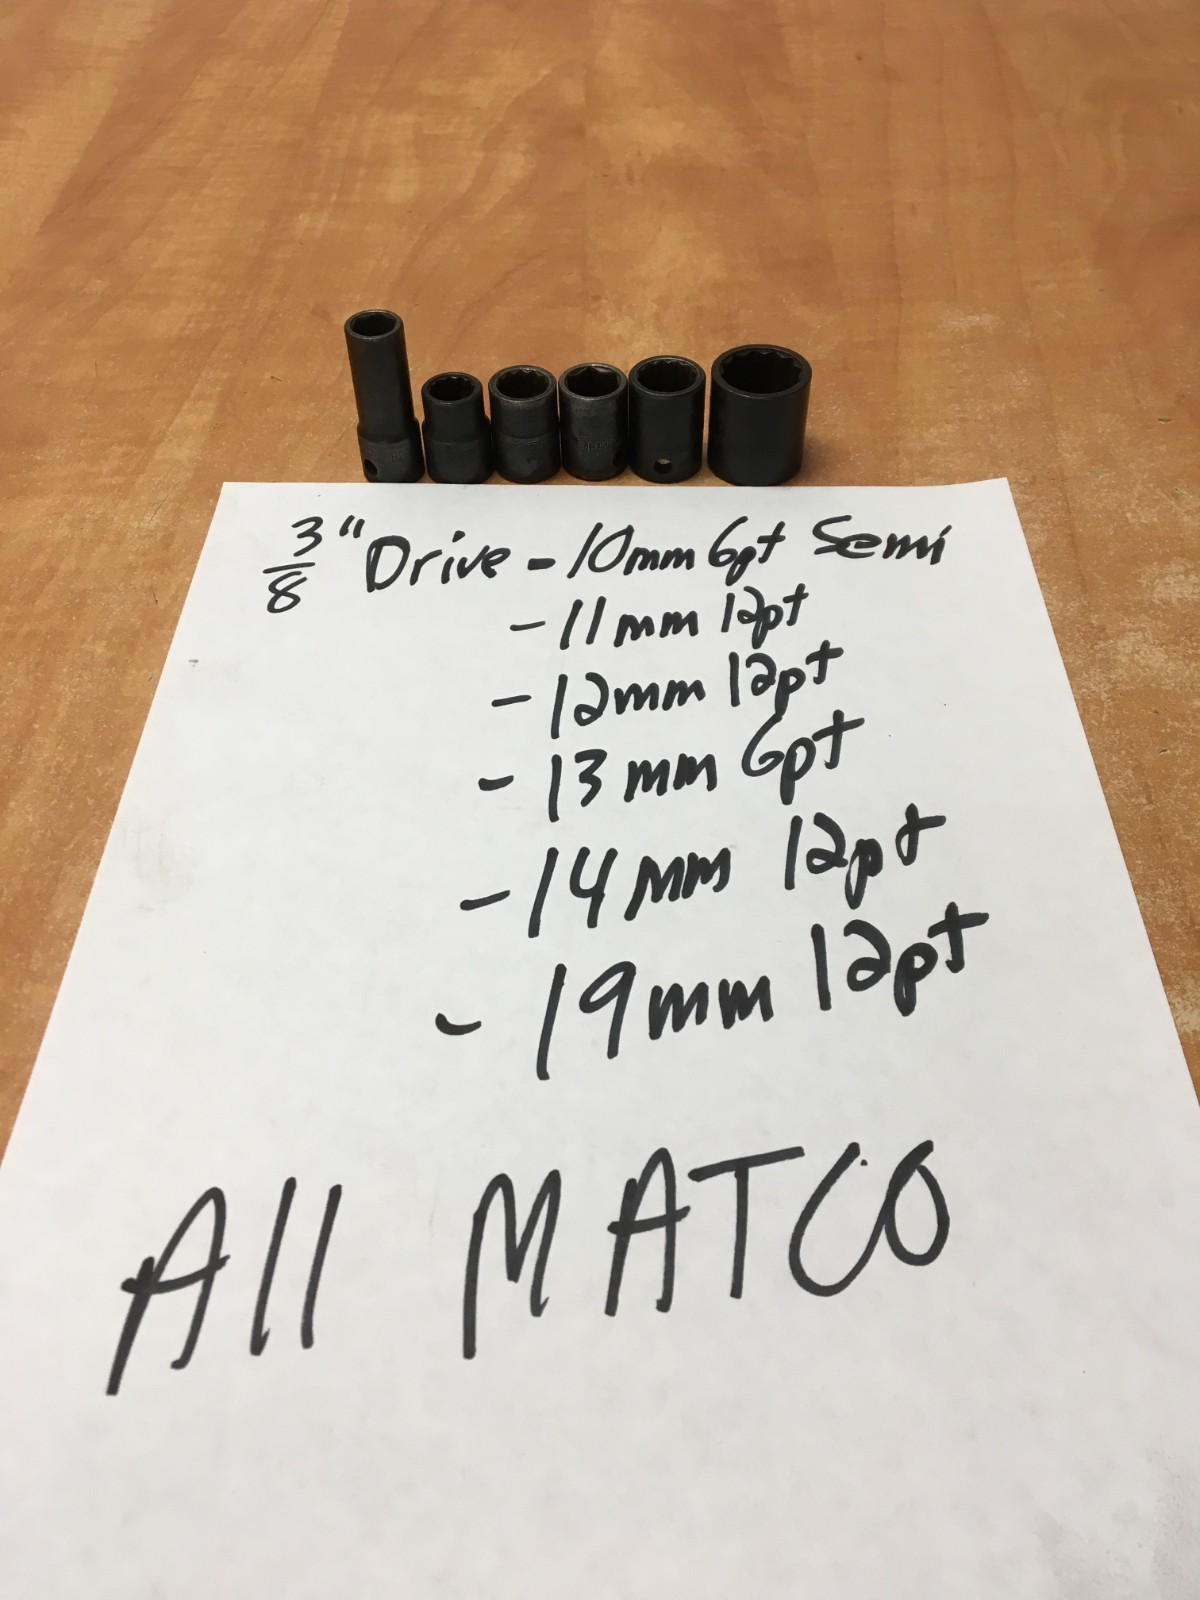 3/8" Drive - 10mm 6pt Semi
- 11mm 12pt
- 12mm 12pt
- 13mm 6pt
- 14mm 12pt
- 19mm 12pt
All MATCO